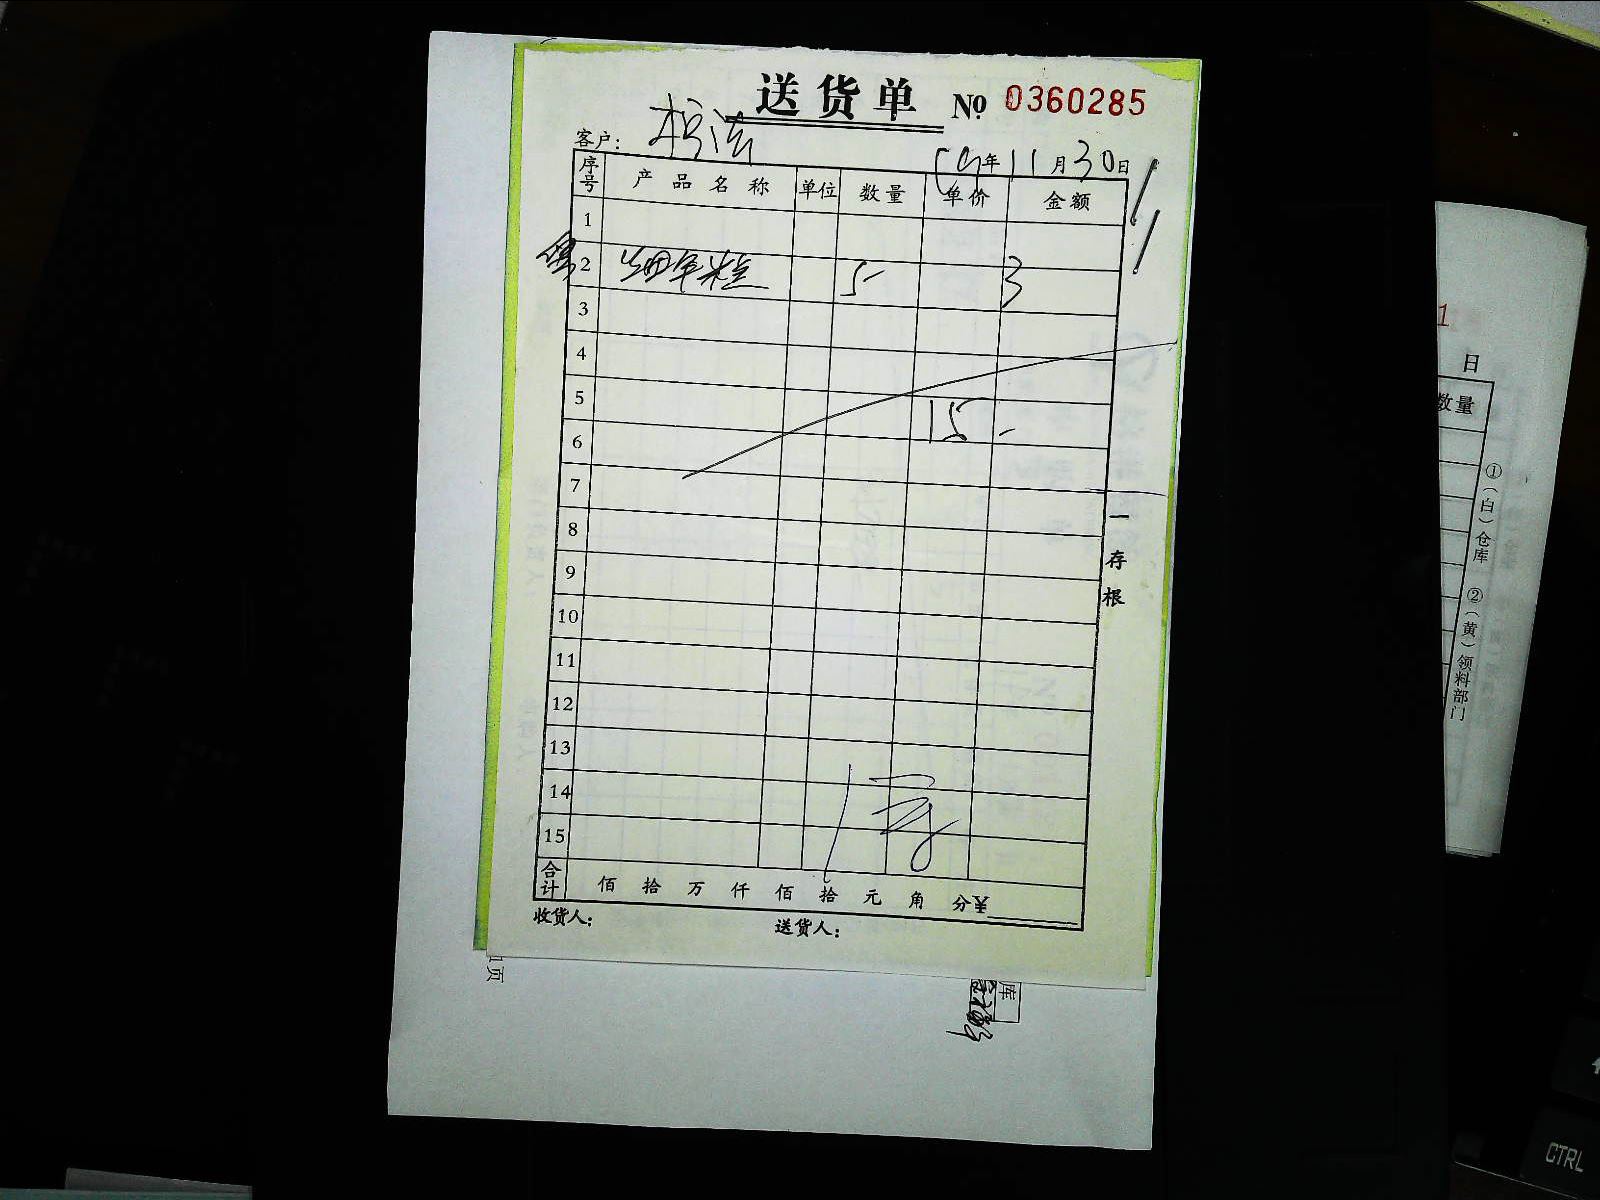 送货单 № 0360285
客户：
19年11月30日
序号 产品名称 单位 数量 单价 金额
1
2 细年糕 5 3
3
4
5
15-
6
7
8
9
10
11
12
13
14
15
合计 佰 拾 万 仟 佰 拾 元 角 分¥
收货人： 送货人：
一存根
1
日
数量
①（白）仓库 ②（黄）领料部门
页
库
CTRL